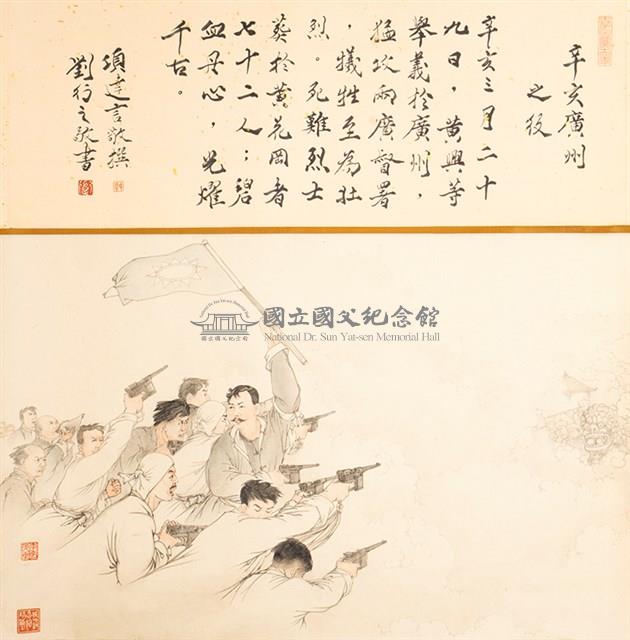 辛亥廣州
之役
辛亥三月二十
九日，黃興等
舉義於廣州，
猛攻兩廣督署
，犧牲至為壯
烈。死難烈士
葬於黃花岡者
七十二人；碧
血丹心，光耀
千古。
項達言敬撰
劉行之敬書
國立國父紀念館
National Dr. Sun Yat-sen Memorial Hall
國立國父紀念館